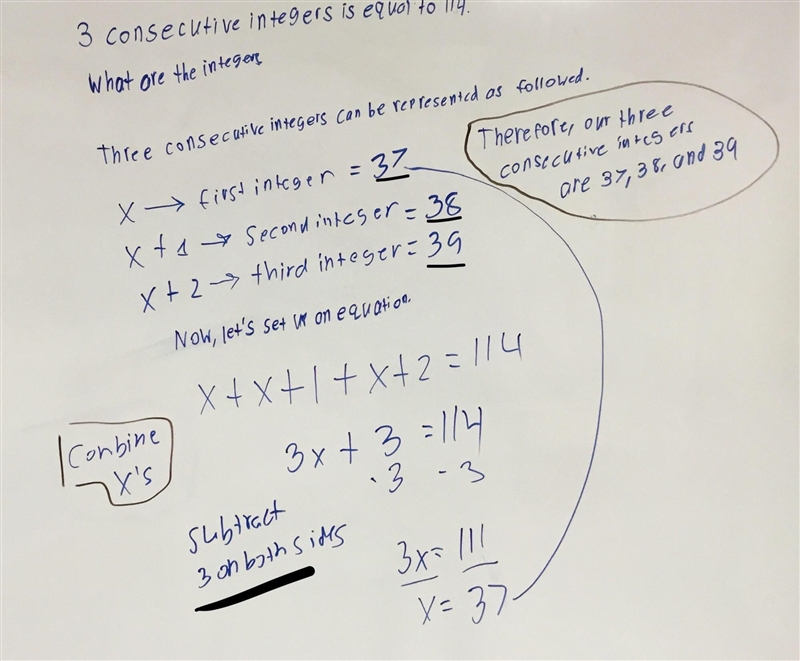 3 consecutive integers is equal to 114.
What are the integers
Three consecutive integers can be represented as followed.
x → first integer = 37
x + 1 → second integer = 38
x + 2 → third integer = 39
Therefore, our three
consecutive integers
are 37, 38, and 39
Now, let's set up an equation.
x + x + 1 + x + 2 = 114
Combine
x's
3x + 3 = 114
-3 -3
Subtract
3 on both sides
3x = 111
x = 37